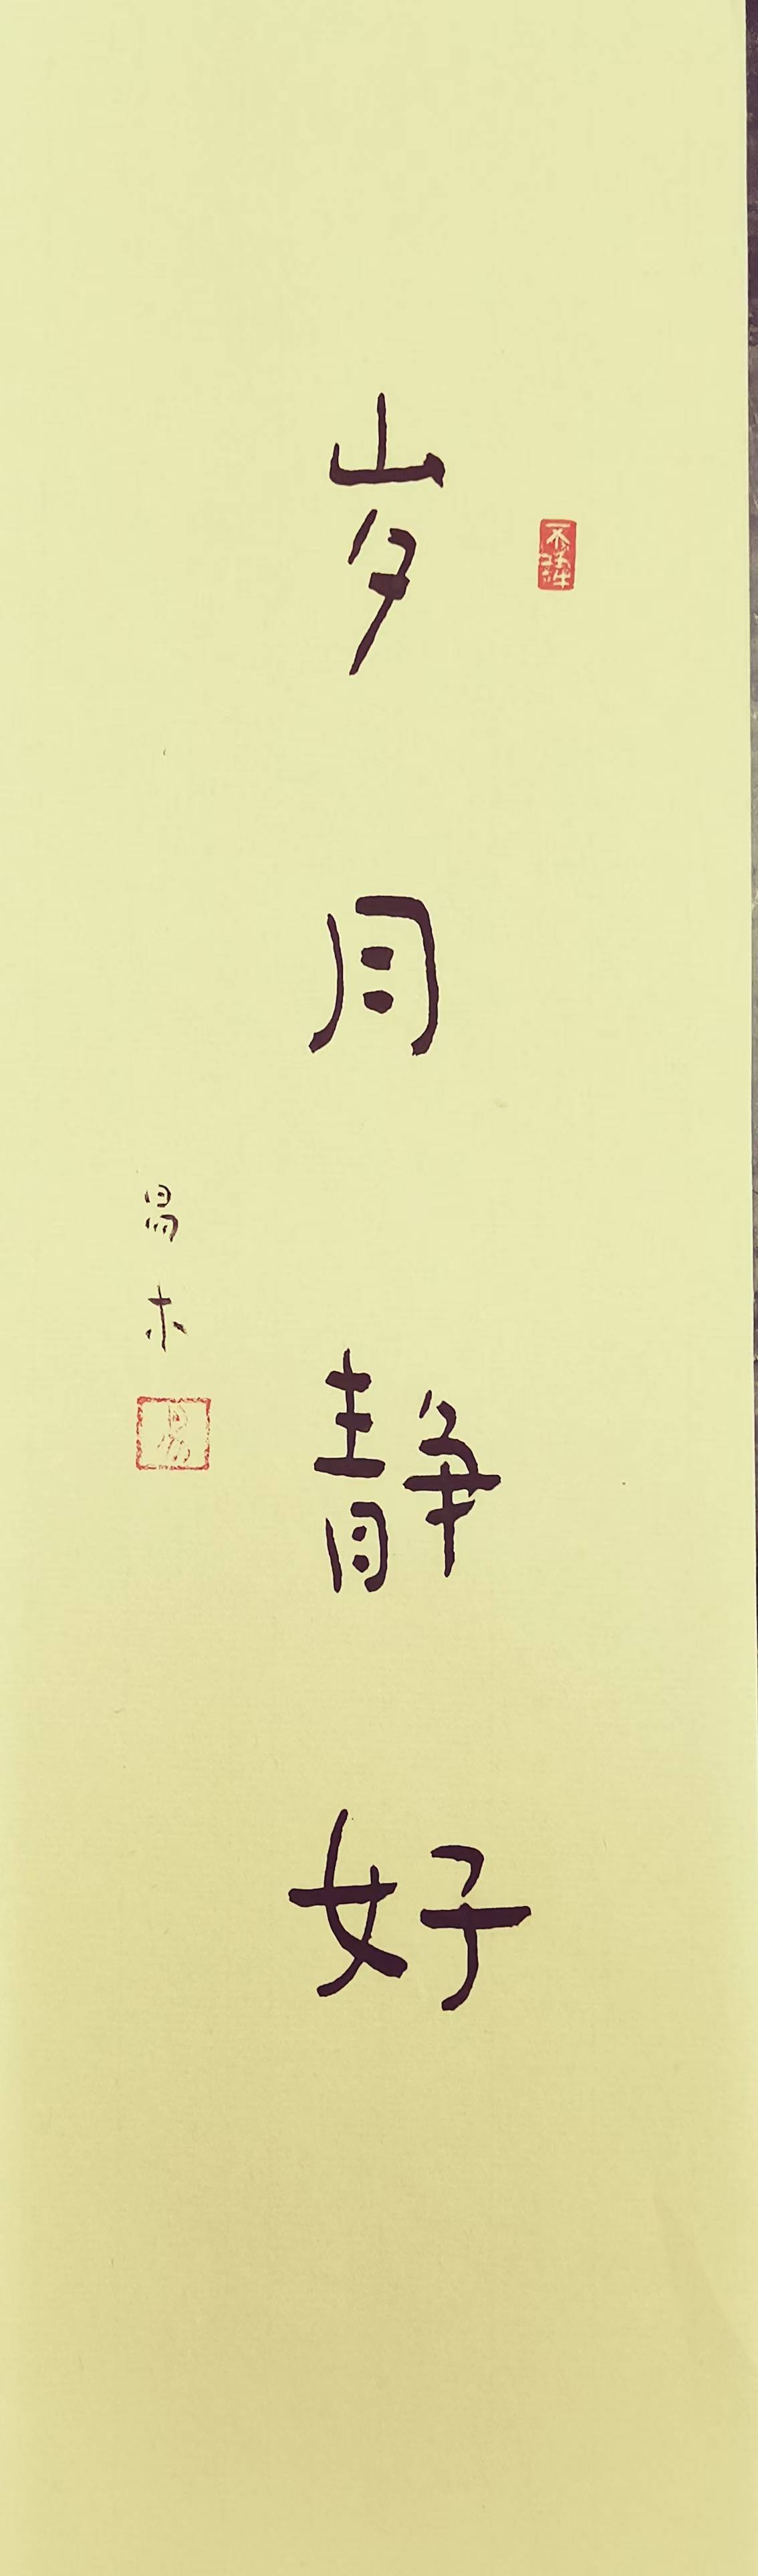 岁月静好
易木